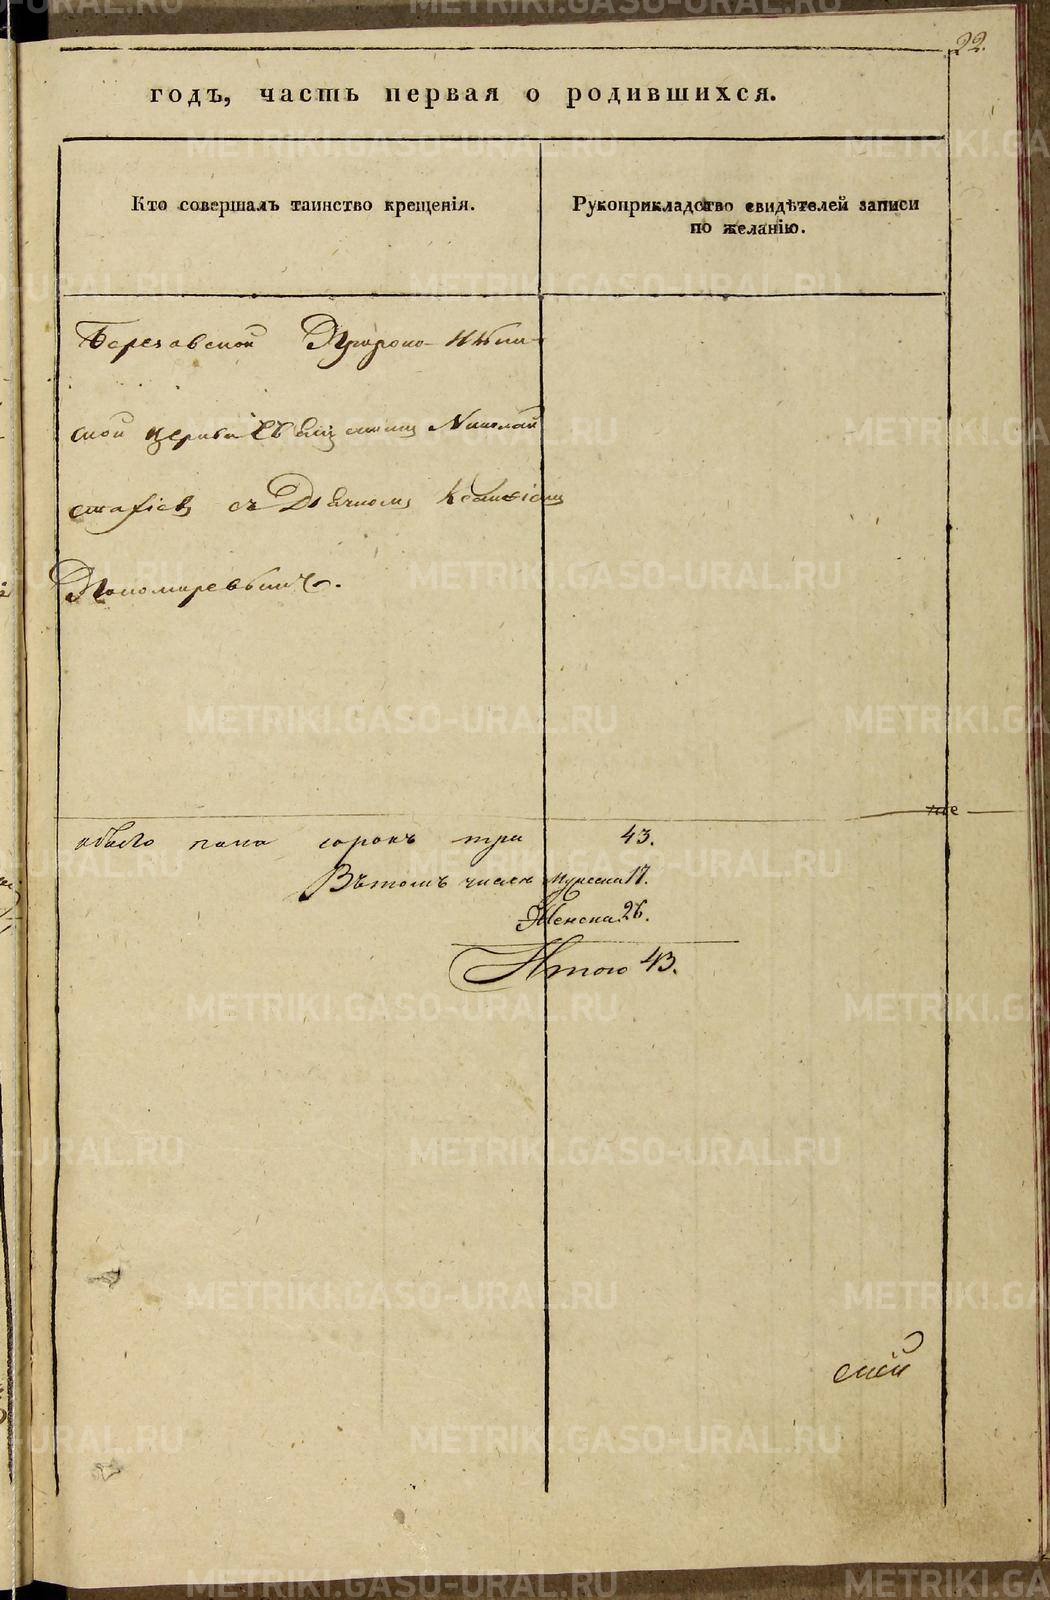 22.
годъ, часть первая о родившихся.
Кто совершалъ таинство крещенія.
Рукоприкладство свидѣтелей записи
по желанію.
Березовской
ской церкви Священникъ Николай
съ Дьячкомъ
Пономаревымъ.
пола сорокъ три 43.
Въ томъ числѣ мужеска 17.
Женска 26.
Итого 43.
METRIKI.GASO-URAL.RU